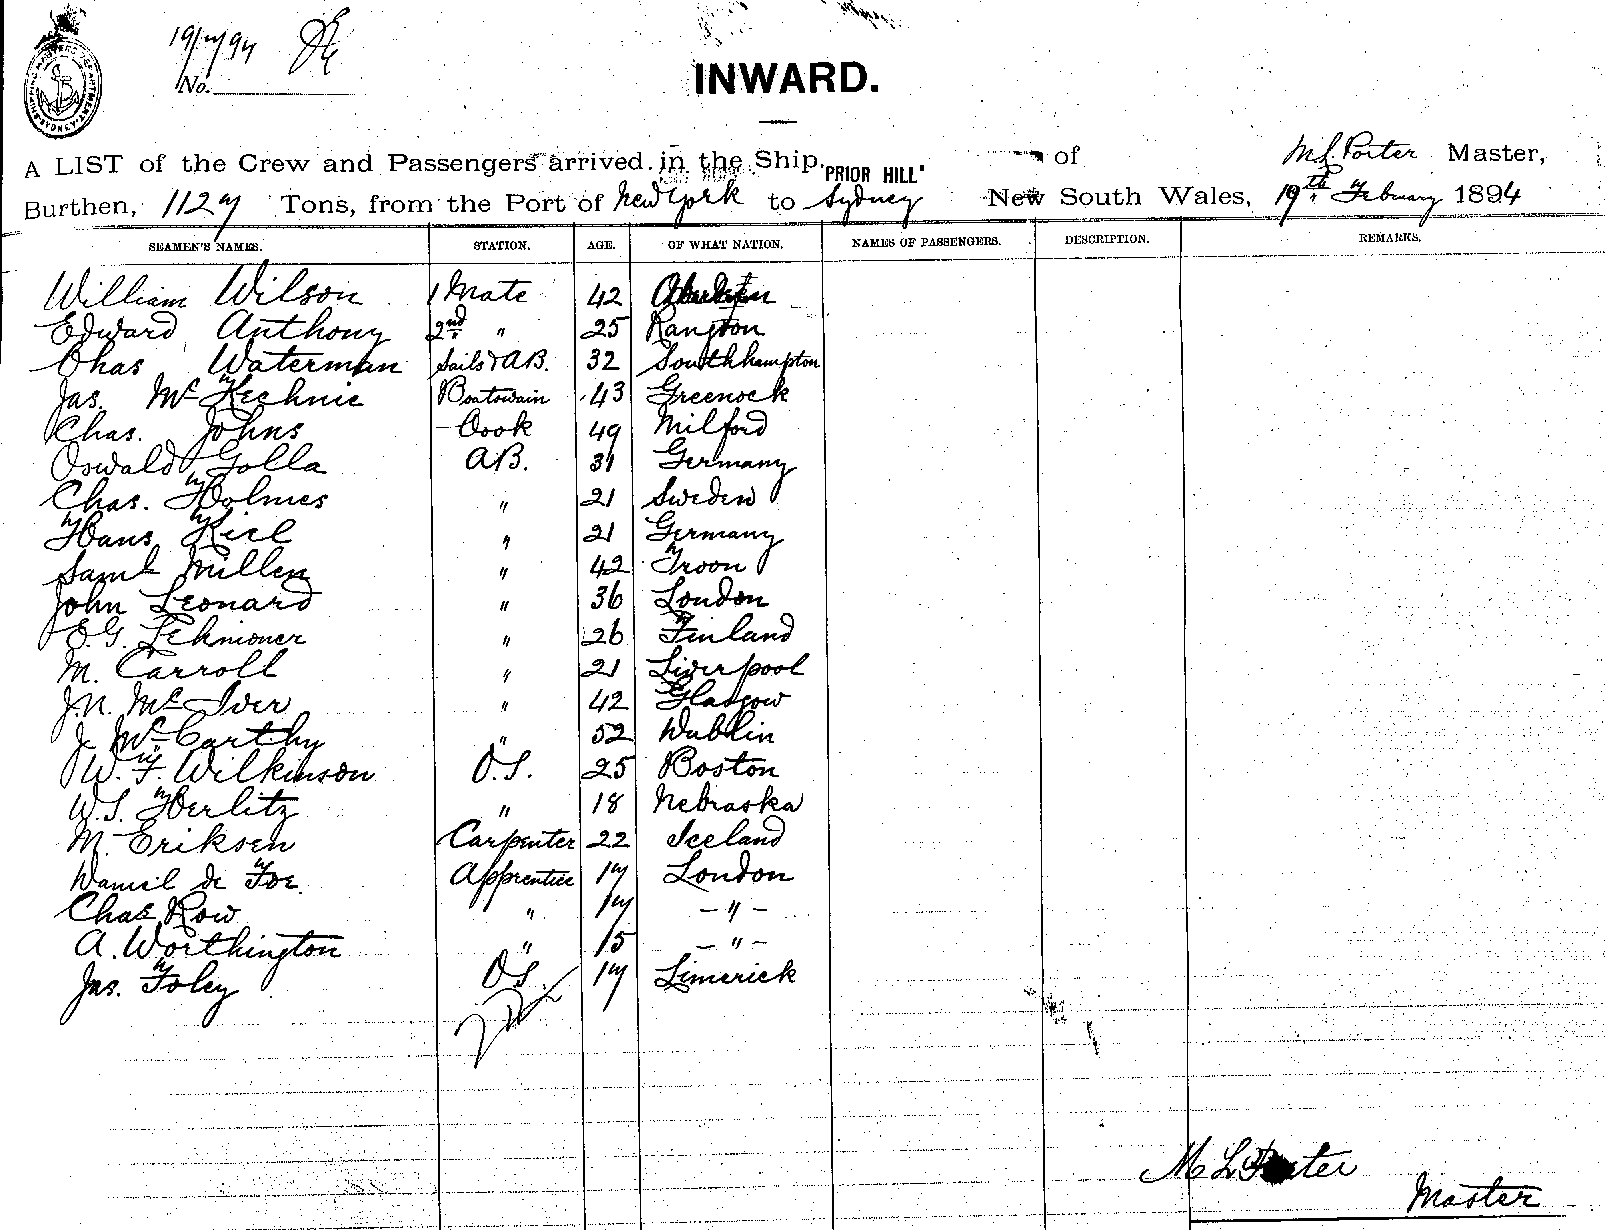 19/2/94
No.
INWARD.
A LIST of the Crew and Passengers arrived in the Ship, "PRIOR HILL" of M L Porter Master,
Burthen, 1127 Tons, from the Port of New York to Sydney New South Wales, 19th February 1894
SEAMEN'S NAMES. STATION. AGE. OF WHAT NATION. NAMES OF PASSENGERS. DESCRIPTION. REMARKS.
William Wilson 1 Mate 42
Edward Anthony 2nd " 25
Chas Waterman Sails & AB. 32 Southhampton
Jas. Mc Kechnie Boatswain 43 Greenock
Chas. Johns Cook 49 Milford
Oswald Golla AB. 31 Germany
Chas. Holmes " 21 Sweden
Hans Kiel " 21 Germany
Saml Millen " 42 Troon
John Leonard " 36 London
E.G. " 26 Finland
M. Carroll " 21 Liverpool
J.N. Mc Iver " 42 Glasgow
J. Mc Carthy " 52 Dublin
W. F. Wilkinson O.S. 25 Boston
W.S. Herlitz " 18 Nebraska
M. Eriksen Carpenter 22 Iceland
Daniel de Foe. Apprentice 17 London
Chas Row " 17 - " -
A. Worthington " 15 - " -
Jas. Foley O.S. 17 Limerick
M L Porter
Master